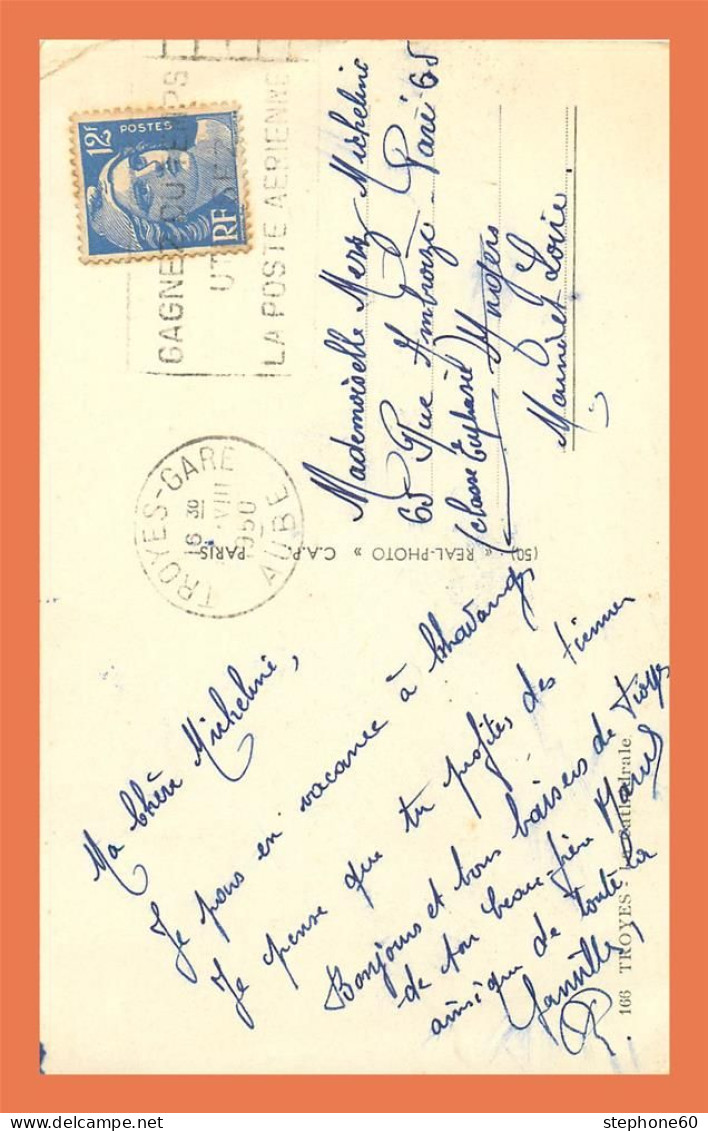 12F
POSTES
RF
GAGNEZ DU TEMPS
UTILISEZ
LA POSTE AERIENNE
TROYES-GARE
16 30
VIII
1950
AUBE
Mademoiselle Merz Micheline
65 Rue Ambroize Paré 65
(classe Euphrasie) Angers
Maine et Loire
(50) « REAL-PHOTO » C.A.P. PARIS
Ma Chère Micheline,
Je passe en vacance à Chavanges
Je pense que tu profites des tiennes
Bonjours et bons baisers de Troyes
de ton beau-frère Marcel
ainsi que de toute la
famille
166 TROYES - La Cathédrale
stephone60